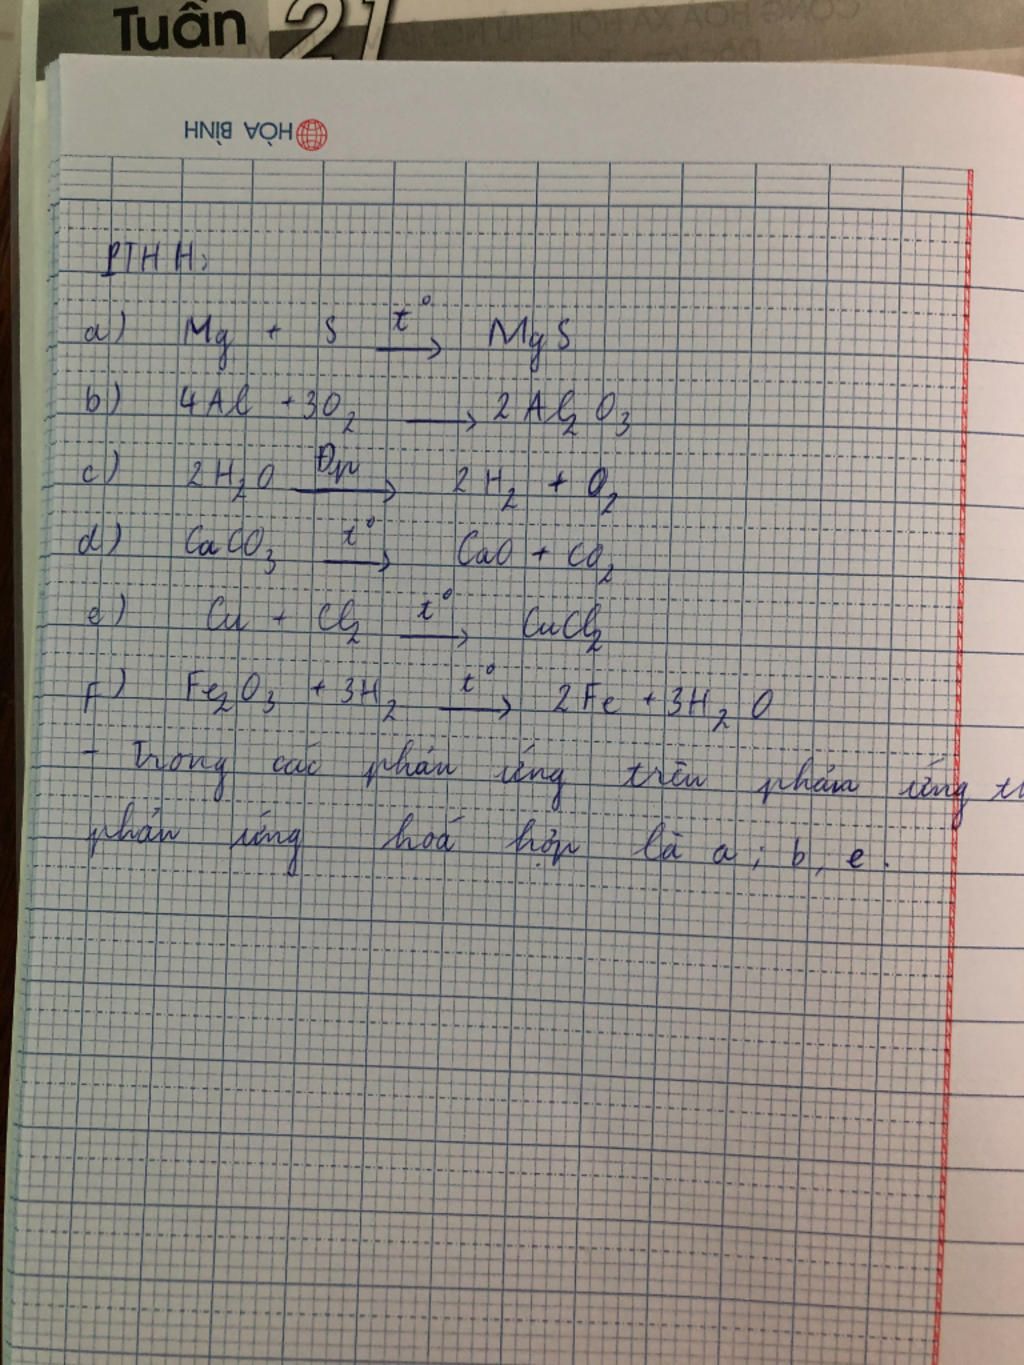 Tuần 21
HÒA BÌNH
PTHH:
a) Mg + S t° → MgS
b) 4Al + 3O₂ → 2Al₂O₃
c) 2H₂O Đp → 2H₂ + O₂
d) CaCO₃ t° → CaO + CO₂
e) Cu + Cl₂ t° → CuCl₂
F) Fe₂O₃ + 3H₂ t° → 2Fe + 3H₂O
- Trong các phản ứng trên phản ứng
phản ứng hoá hợp là a; b, e.